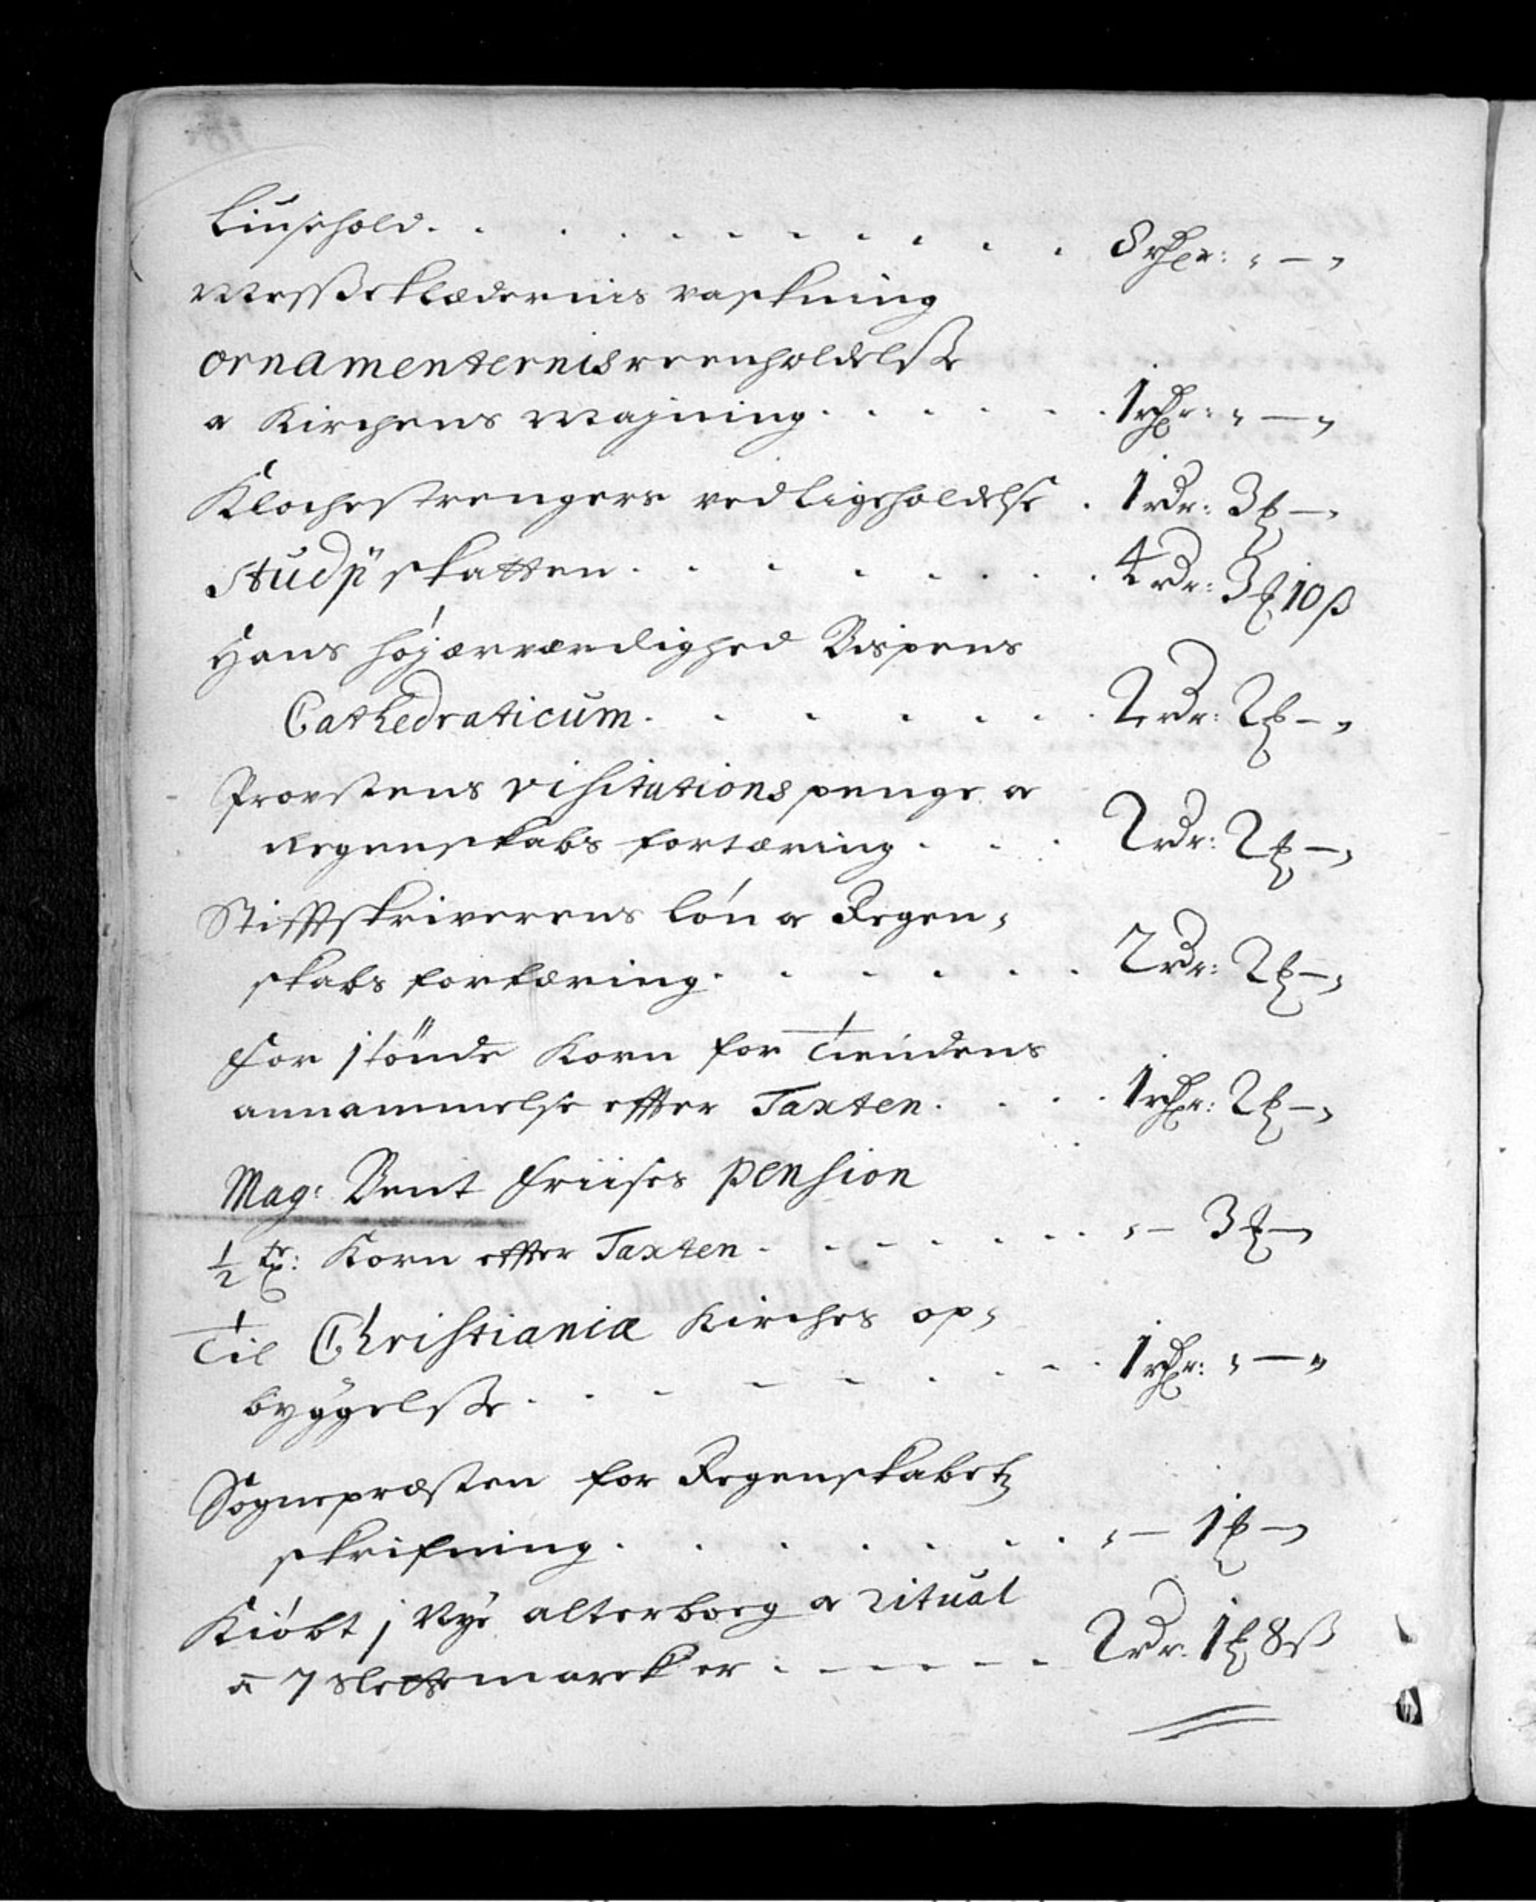 Liusehold. . . . . . . . . . . 8 rdr: " — "
Messeklædernis vaskning
ornamenternis reenholdelsse
oc Kirchens Majning. . . . . . 1 rdr: " — "
Klochestrengers vedligeholdelse . 1 rdr: 3 ꝑ — "
Studÿ skatten. . . . . . . . 4 rdr: 3 ꝑ 10 ß
Hans højærværdighed Bispens
Cathedraticum. . . . . . . 2 rdr: 2 ꝑ — "
Provstens visitations penge oc
Regenskabs fortæring . . . 2 rdr: 2 ꝑ — "
Stifftskriverens lón oc Regen,
skabs fortæring. . . . . . 2 rdr: 2 ꝑ — "
For j tönde Korn for Tiendens
annammelse effter Taxten. . . . 1 rdr: 2 ꝑ — "
Mag: Bent Friises pension
½ tr: Korn effter Taxten. . . . . . . " — 3 ꝑ — "
Til Christianiæ Kirches op,
byggelsse. . . . . . . . . 1 rdr: " — "
Sognepræsten for Regenskabetz
skrifning. . . . . . . . " — 1 ꝑ — "
Kióbt j Nye alterboeg oc Ritual
a 7 slettemarck er . — — — — 2 rdr. 1 ꝑ 8 ß